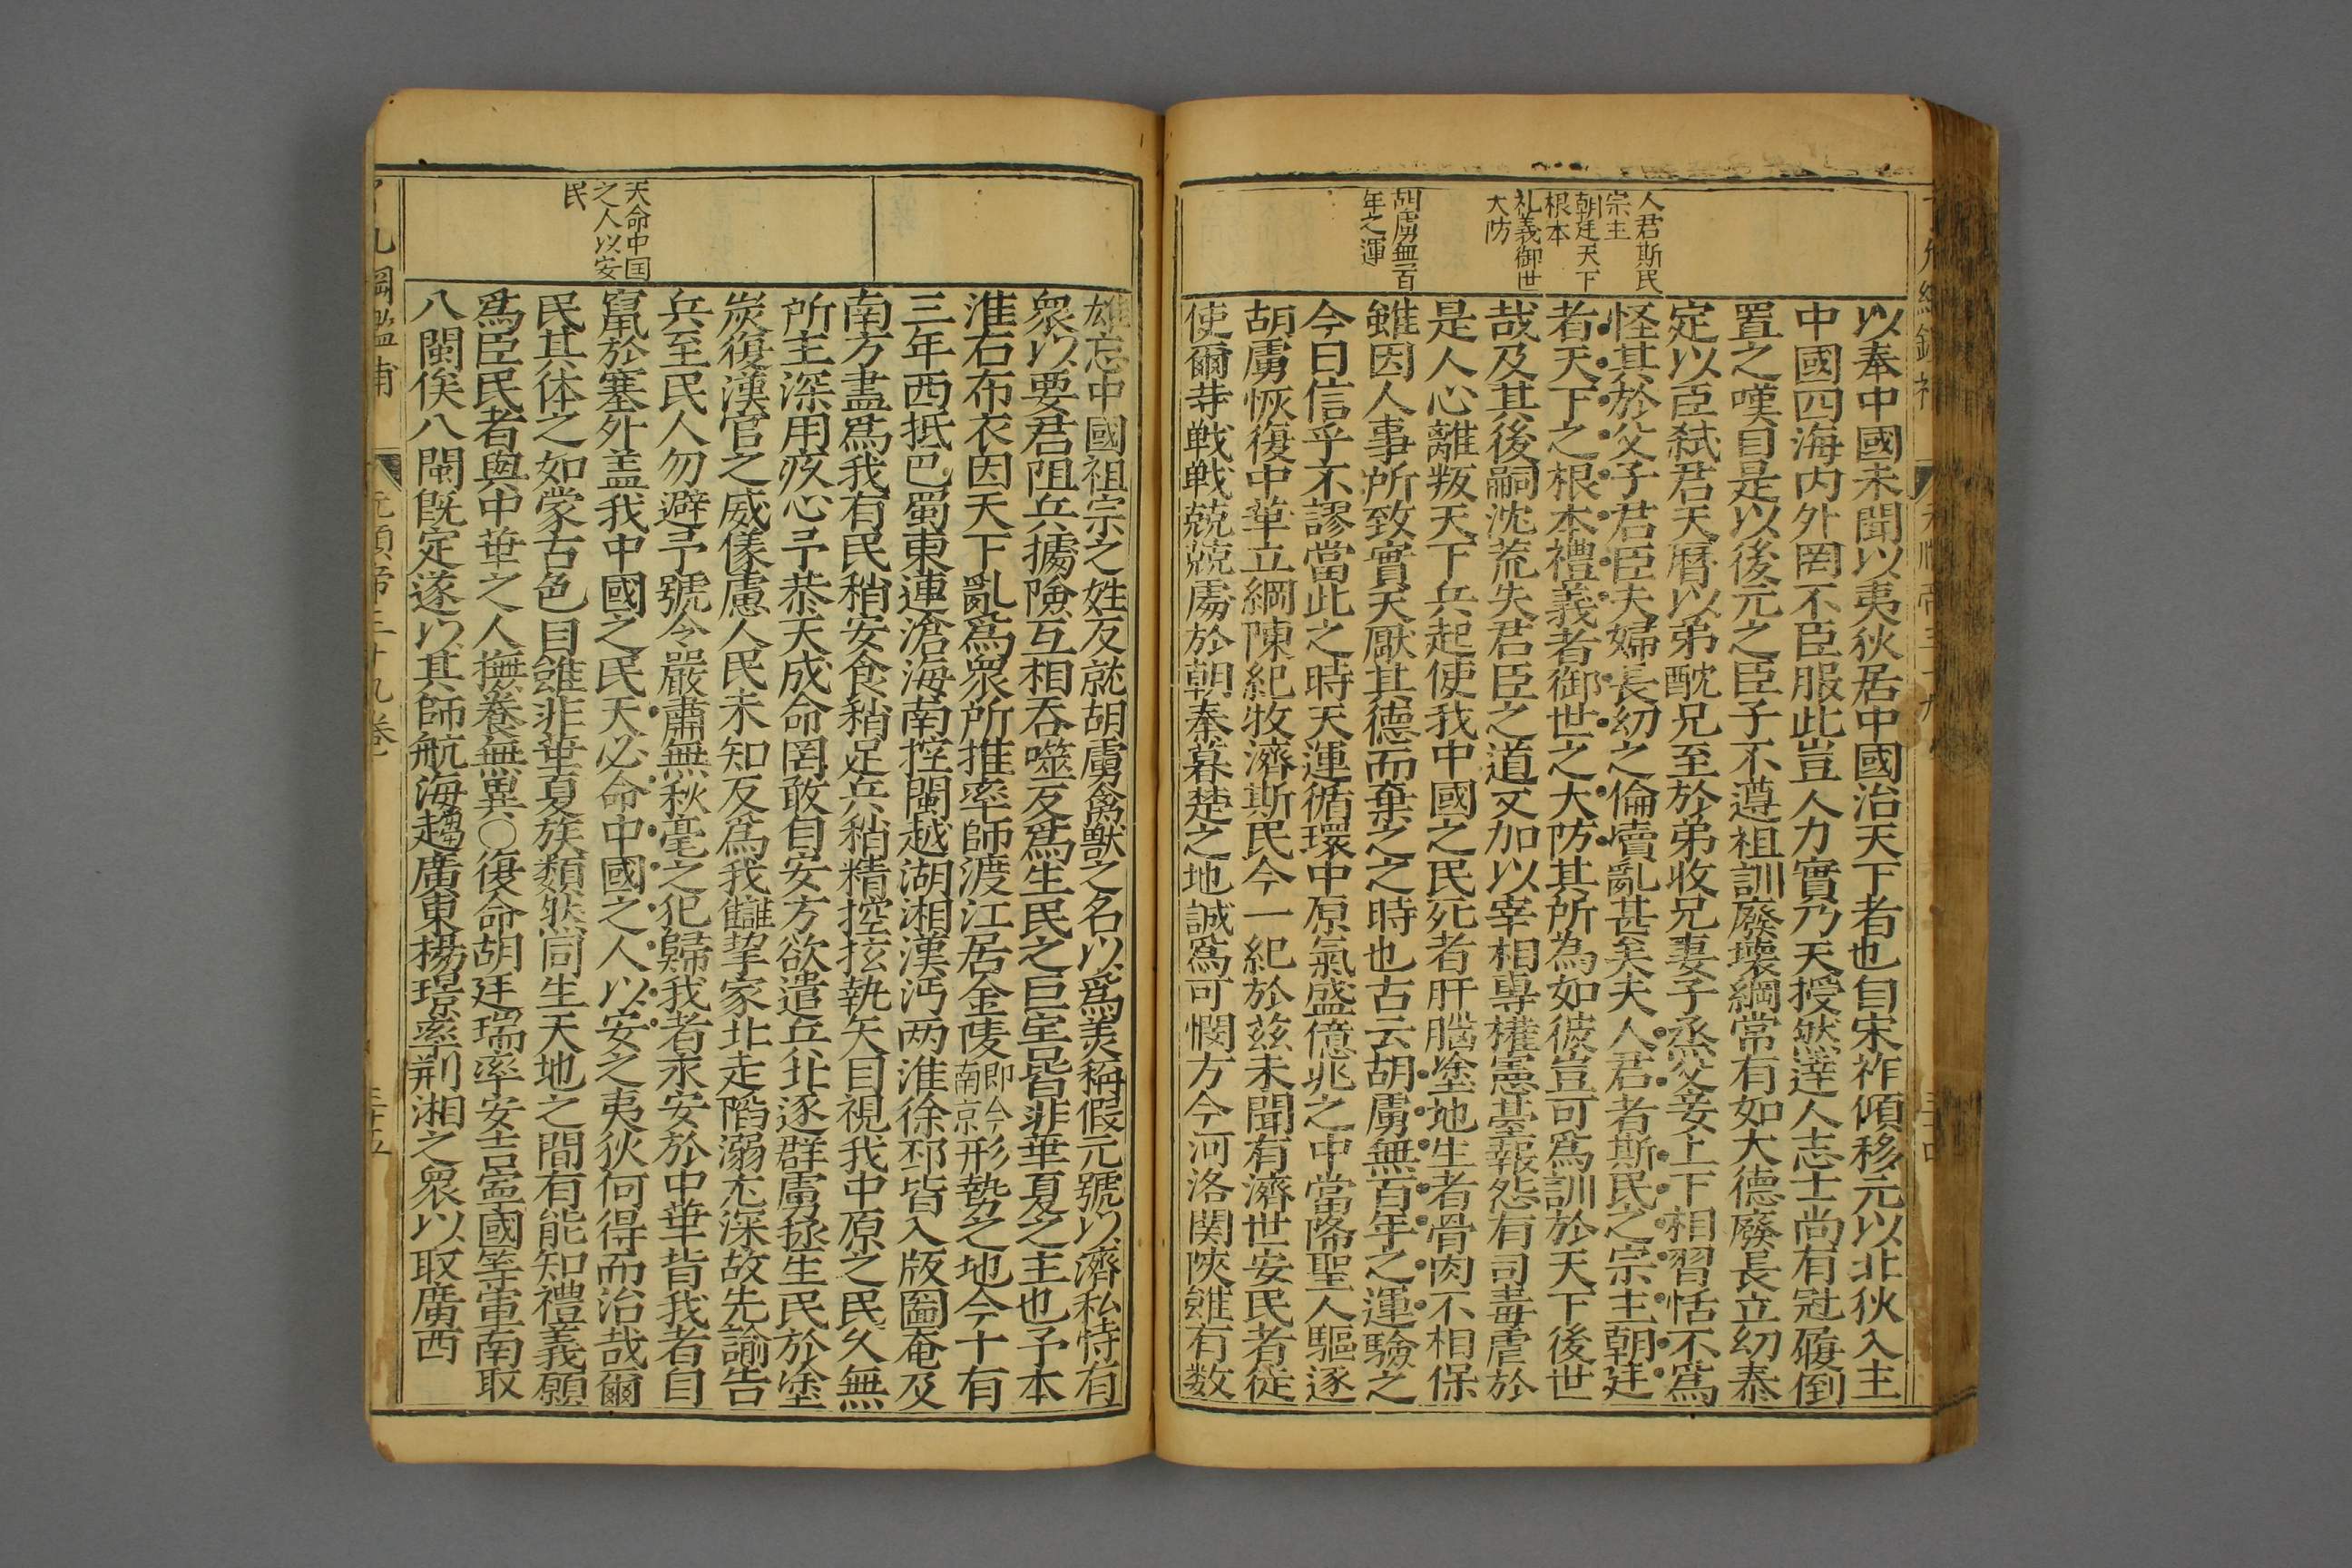 人君斯民
宗主
朝廷天下
根本
礼義御世
大防
胡虜無百
年之運
以奉中國未聞以夷狄居中國治天下者也自宋祚傾移元以北狄入主
中國四海内外罔不臣服此豈人力實乃天授然達人志士尚有冠履倒
置之嘆自是以後元之臣子不遵祖訓廢壊綱常有如大德廢長立幼泰
定以臣弑君天曆以弟酖兄至於弟收兄妻子烝父妾上下相習恬不爲
怪其於父子君臣夫婦長幼之倫凟亂甚矣夫人君者斯民之宗主朝廷
者天下之根本禮義者御世之大防其所為如彼豈可爲訓於天下後世
哉及其後嗣沈荒失君臣之道又加以宰相專權憲䑓報怨有司毒虐於
是人心離叛天下兵起使我中國之民死者肝腦塗地生者骨肉不相保
雖因人事所致實天厭其德而棄之之時也古云胡虜無百年之運驗之
今日信乎不謬當此之時天運循環中原氣盛億兆之中當降聖人驅逐
胡虜恢復中華立綱陳紀牧濟斯民今一紀於兹未聞有濟世安民者徒
使爾等戦戦兢兢處於朝秦暮楚之地誠爲可憫方今河洛関陝雖有数
天命中国
之人以安
民
雄忘中國祖宗之姓反就胡虜禽獸之名以爲美稱假元號以濟私恃有
衆以要君阻兵據險互相吞噬反爲生民之巨害皆非華夏之主也予本
淮右布衣因天下亂爲衆所推率師渡江居金陵即今南京形勢之地今十有
三年西抵巴蜀東連滄海南控閩越湖湘漢沔两淮徐邳皆入版圖奄及
南方盡爲我有民稍安食稍足兵稍精控弦執矢目視我中原之民久無
所主深用疚心予恭天成命罔敢自安方欲遣兵北逐群虜拯生民於塗
炭復漢官之威儀慮人民未知反爲我讎挈家北走陷溺尤深故先諭告
兵至民人勿避予號令嚴肅無秋毫之犯歸我者永安於中華背我者自
竄於塞外盖我中國之民天必命中國之人以安之夷狄何得而治哉爾
民其体之如蒙古色目雖非華夏族類然同生天地之間有能知禮義願
爲臣民者與中華之人撫養無異〇復命胡廷瑞率安吉寧國等軍南取
八閩俟八閩既定遂以其師航海趨廣東楊璟率荆湘之衆以取廣西
元順帝三十九卷
三十五